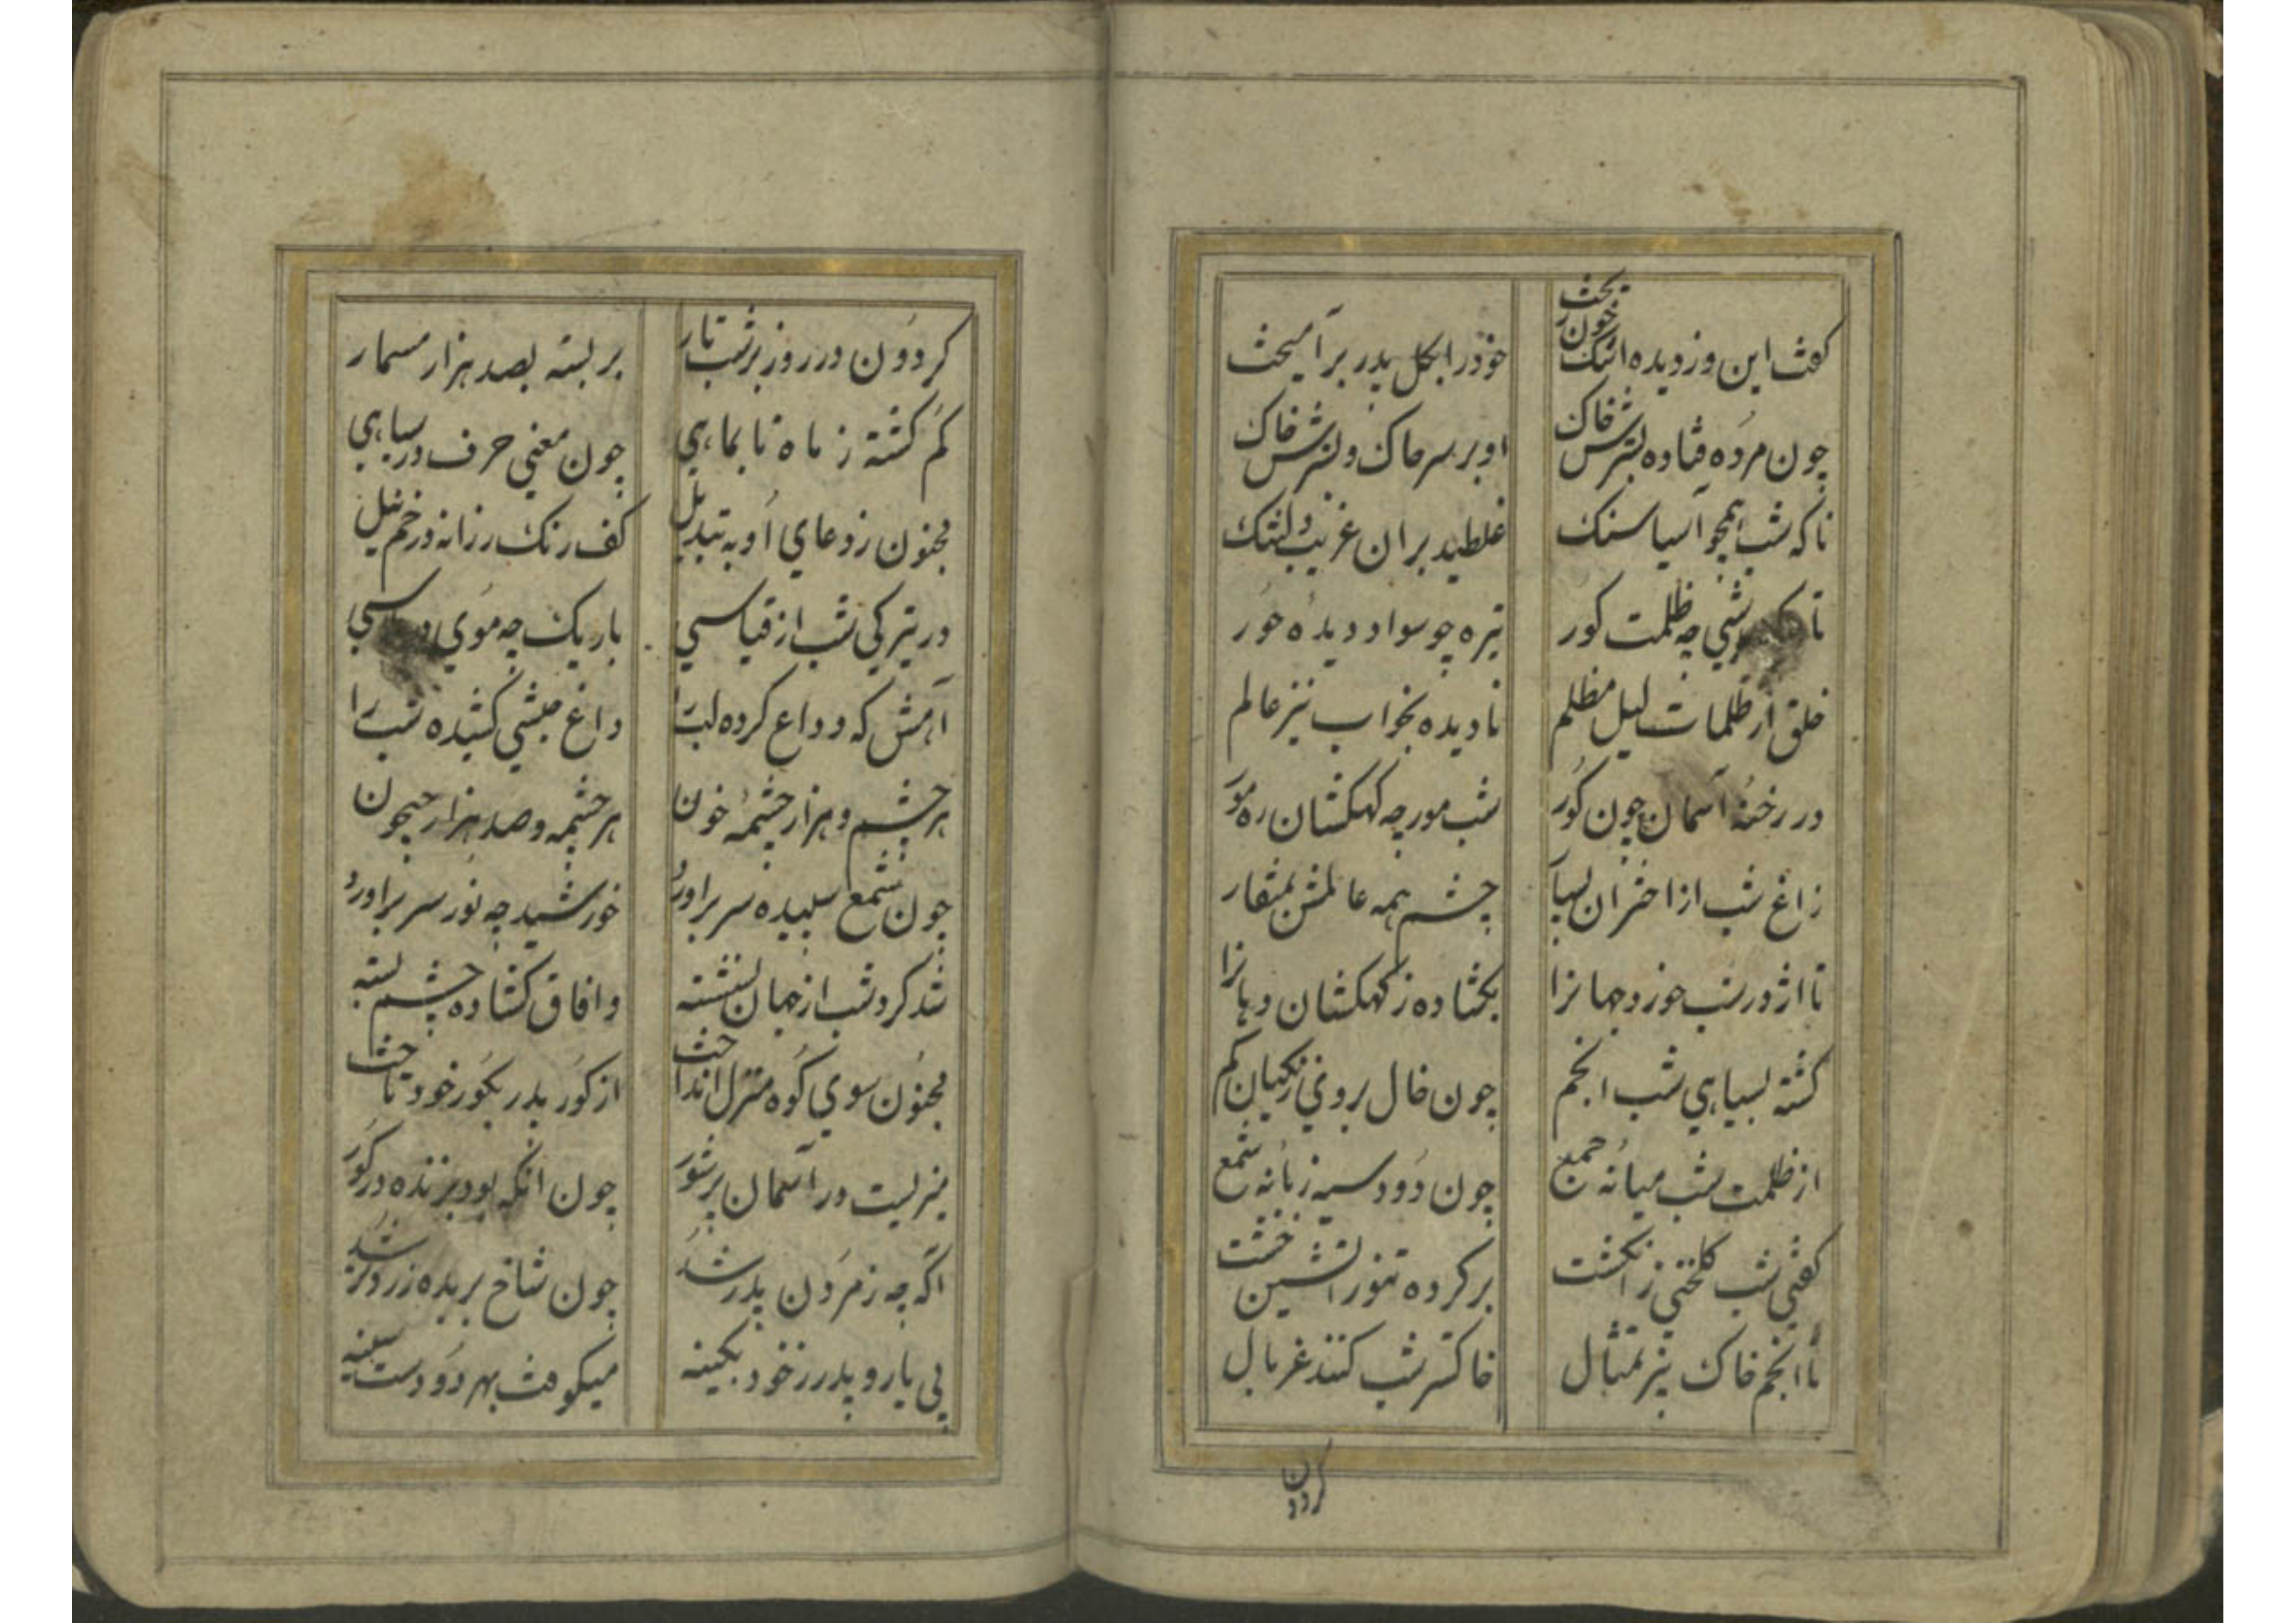 کفت این وز دیده اشک خون ریخت خود را بکل پدر برآمیخت
چون مرده فتاده بسترش خاک او بر سر خاک و بسترش خاک
تا که شب همچو آسیا سنک غلطید بران غریب دلتنک
شبی چه ظلمت کور تیره چو سواد دیده حور
خلق از ظلمات لیل مظلم نادیده بخواب نیز عالم
در رخنه آسمان چون کور شب مورچه کهکشان ره مور
زاغ شب از اختران بسیار چشم همه عالمش بمنقار
تا اژدر شب خورد جهانرا بکشاده ز کهکشان دهانرا
کشته بسیاهی شب انجم چون خال بروی زنکیان کم
از ظلمت شب میانه جمع چون دود سیه زبانه شمع
کفتی شب کلخنی ز انکشت بر کرده تنور آتشین خشت
تا انجم خاک بیز تمثال خاکستر شب کنند غربال
کردون
کردون در روز بر شب تار بر بسته بصد هزار مسمار
کم کشته ز ماه تا بماهی چون معنی حرف در سیاهی
مجنون ز دعای او به تبدیل کف رنک رزانه در خم نیل
در تیرکی شب از قیاسی باریک چه موی در
آهش که وداع کرده لب را داغ حبشی کشیده شب را
هر چشم و هزار چشمه خون هر چشمه و صد هزار جیحون
چون شمع سپیده سر براورد خورشید چه نور سر براورد
شد کرد شب از جهان نشسته وافاق کشاده چشم بسته
مجنون سوی کوه منزل انداخت از کور پدر بکور خود تاخت
میزیست در آسمان پر شور چون آنکه بود بزنده در کور
اکه چه ز مردن پدر شد چون شاخ بریده زردتر شد
بی یار و پدر ز خود بکینه میکوفت بهر دو دست سینه